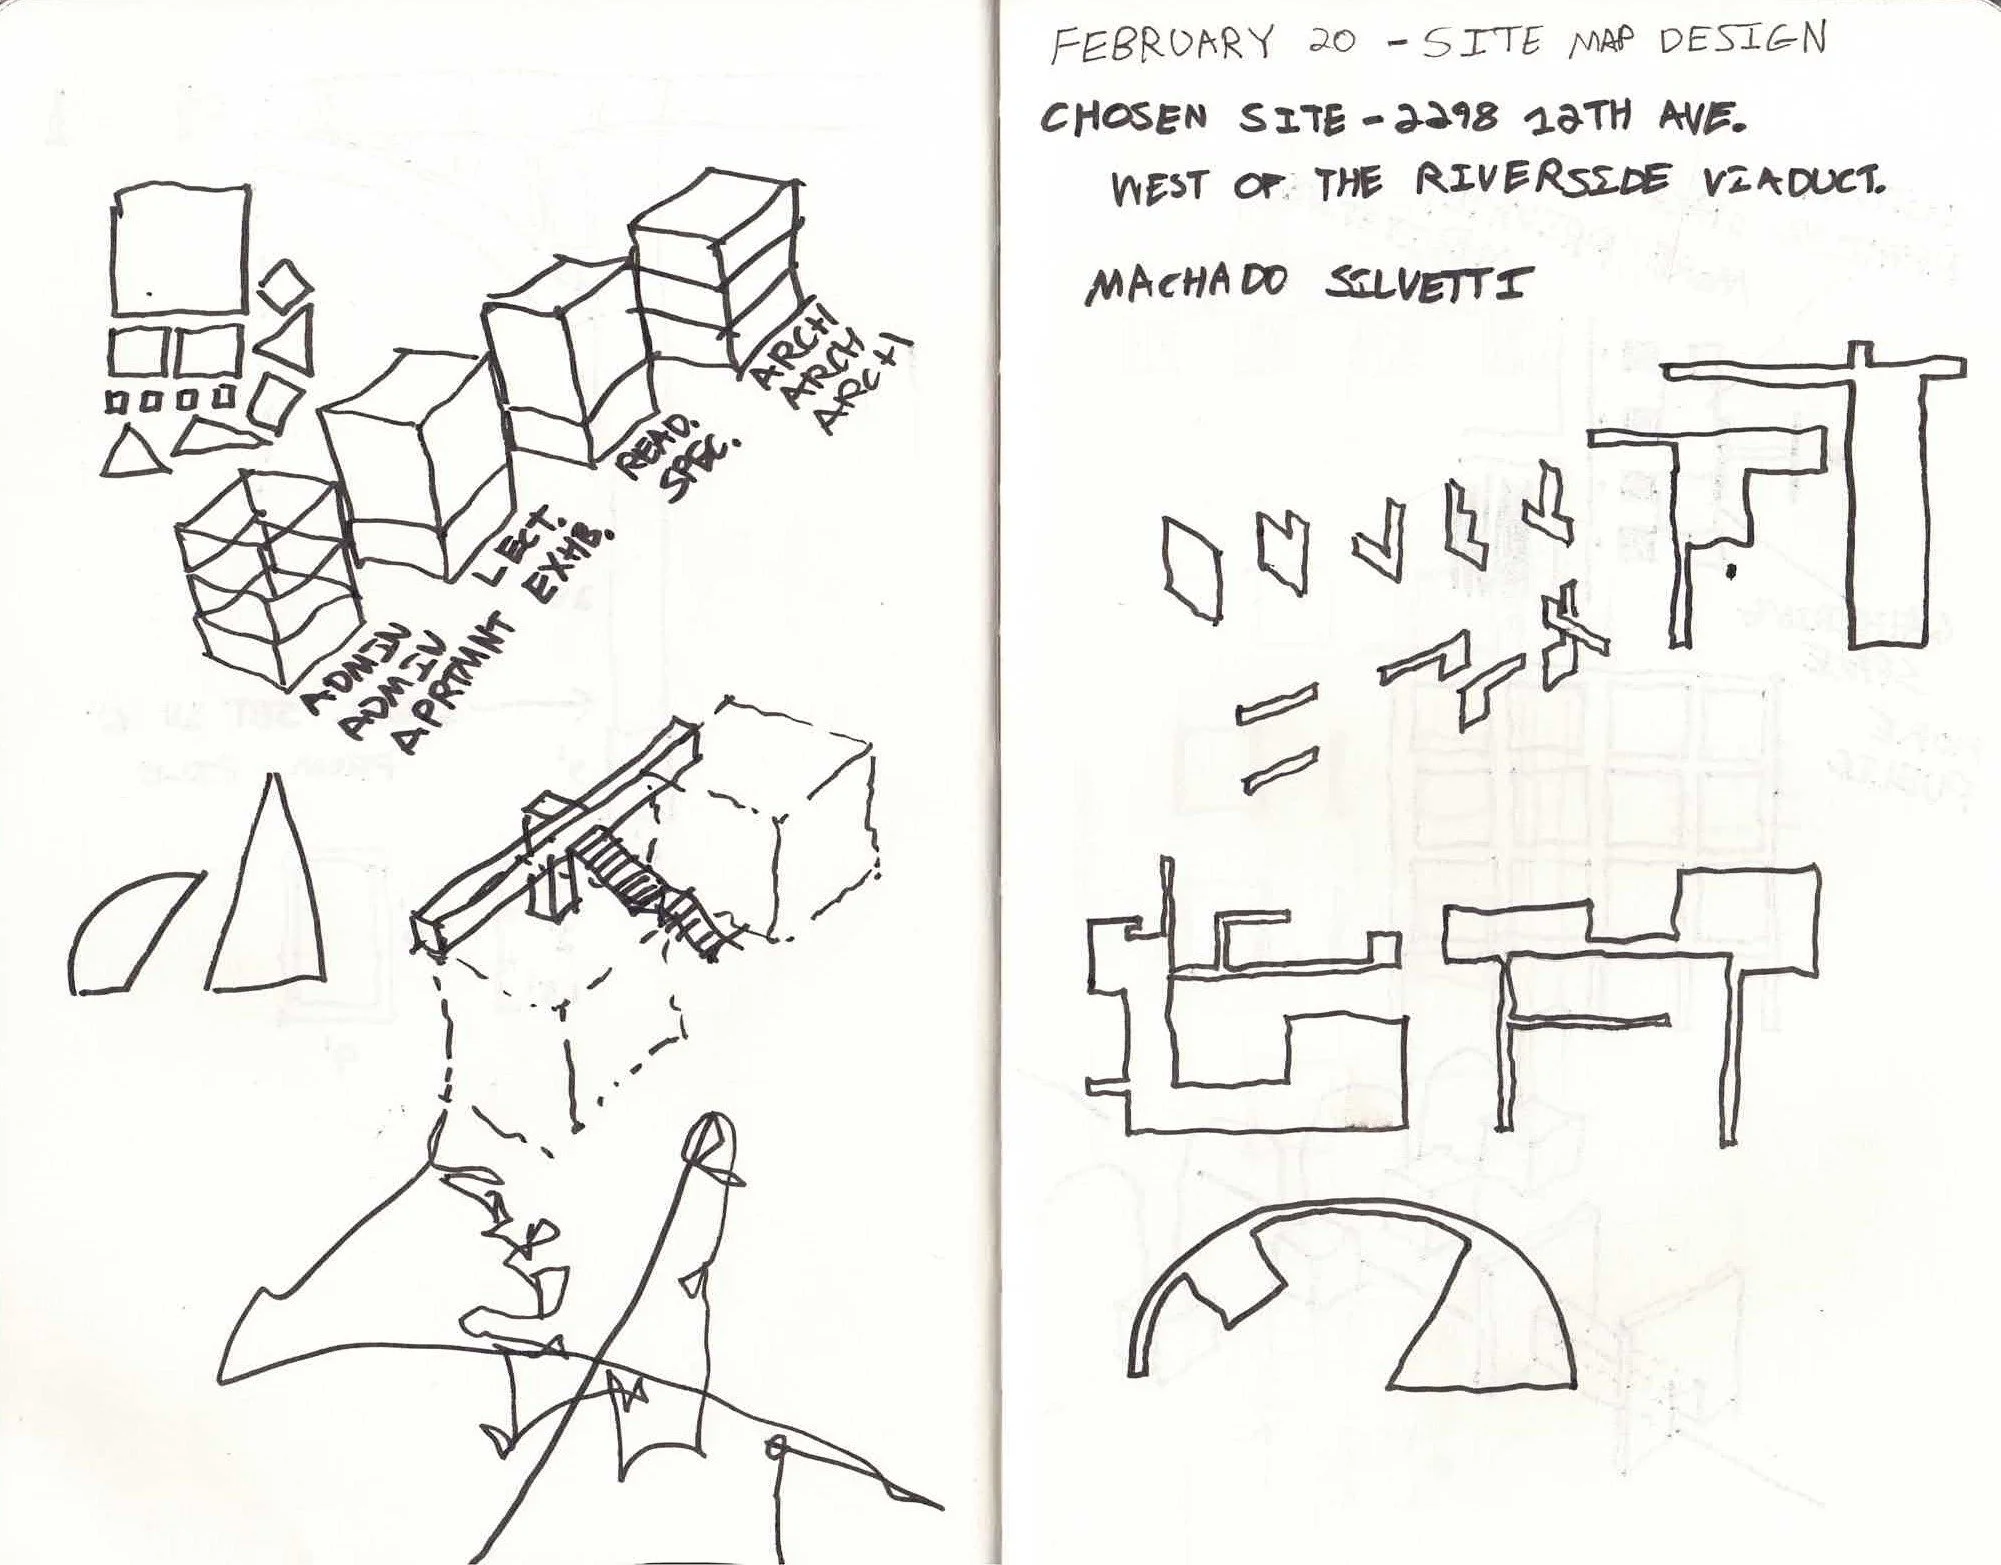 ARCH
ARCH
ARCH
READ.
SPEC.
LECT.
EXHB.
ADMIN
ADMIN
APRTMNT
FEBRUARY 20 - SITE MAP DESIGN
CHOSEN SITE - 2298 12TH AVE.
WEST OF THE RIVERSIDE VIADUCT.
MACHADO SILVETTI